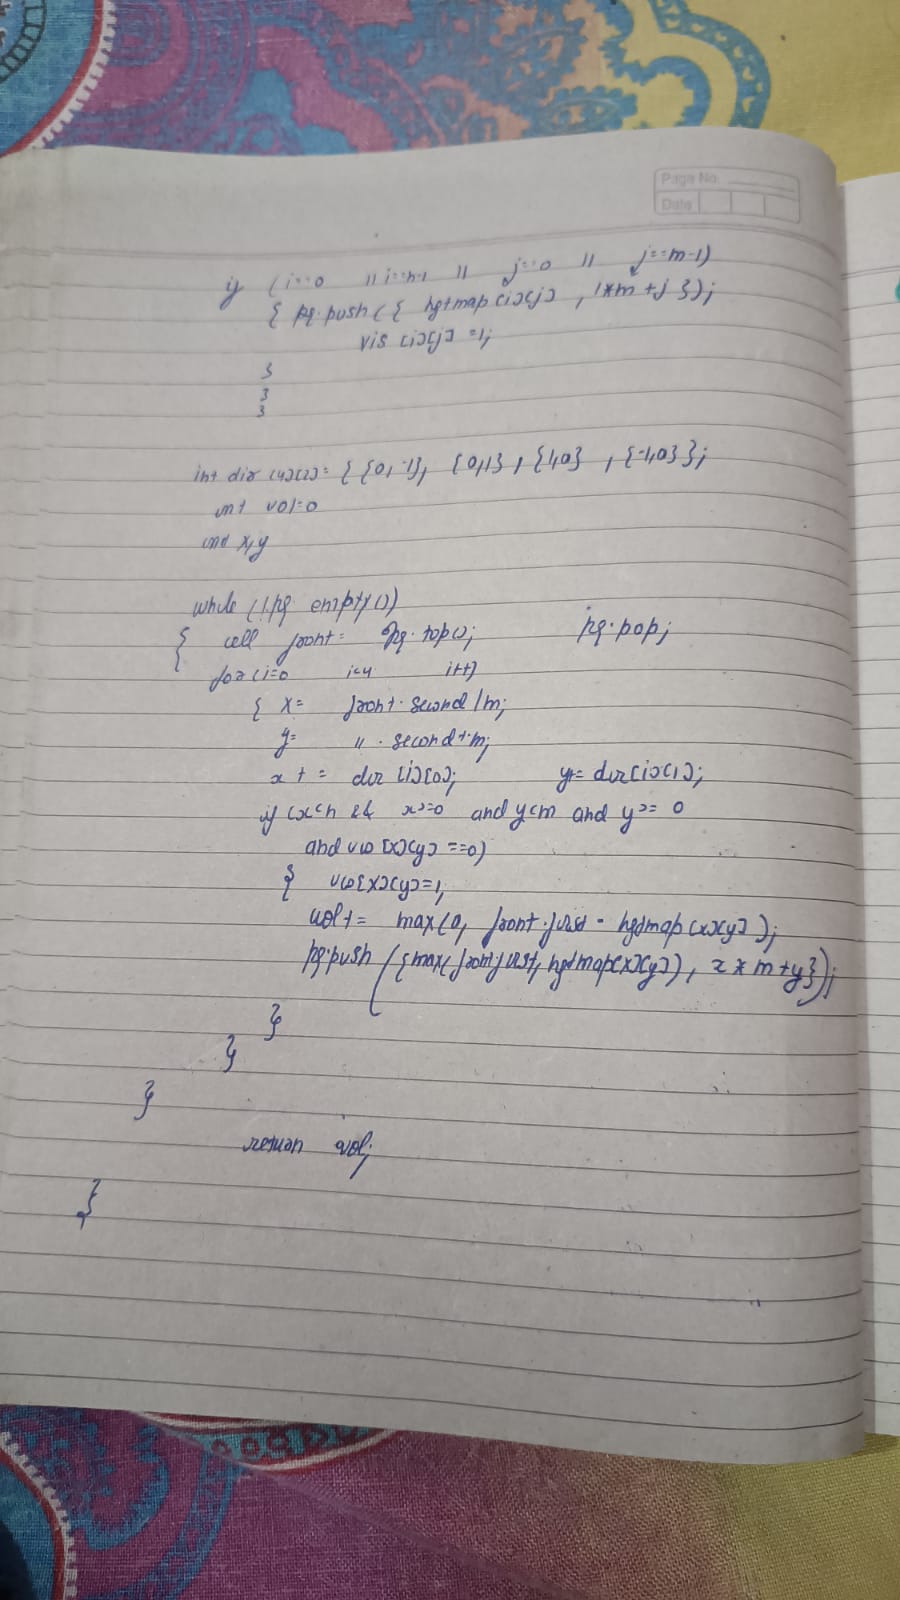 Page No.
Date
if (i==0 || i==n-1 || j==0 || j==m-1)
{ pq.push({ hgtmap[i][j] , i*m+j });
vis[i][j] =1;
}
}
}
int dir[4][2]= { {0,-1}, {0,1} , {1,0} , {-1,0} };
int vol=0
int x,y
while (!pq empty())
{ cell front= pq.top(); pq.pop;
for (i=0 i<4 i++)
{ x= front.second/m;
y= " .second%m;
x += dir[i][0]; y+= dir[i][1];
if (x<n && x>=0 and y<m and y>=0
and vis[x][y]==0)
{ vis[x][y]=1;
vol+= max(0, front.first - hgtmap[x][y]);
pq.push ({max(front.first, hgtmap[x][y]), x*m+y});
}
}
}
return vol;
}